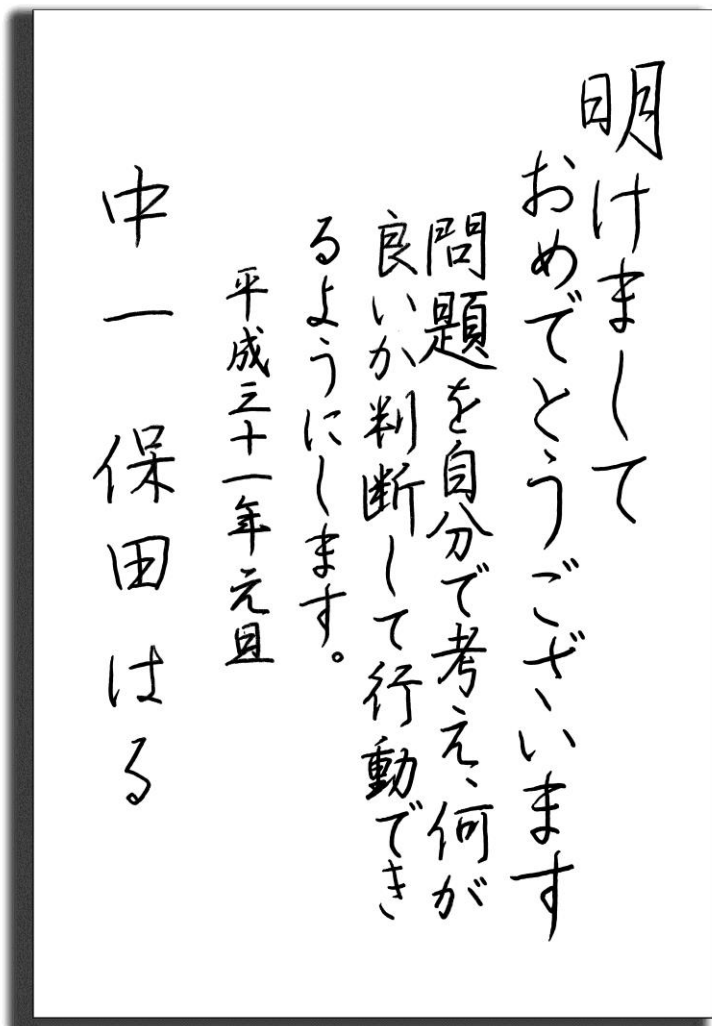 明けまして
おめでとうございます
問題を自分で考え、何が
良いか判断して行動でき
るようにします。
平成三十一年元旦
中一 保田 はる